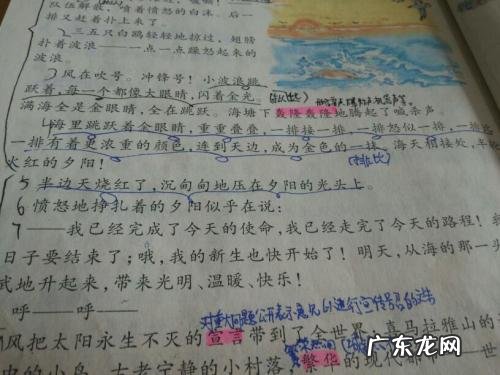 队伍解散
喷着愤怒的白沫。后一
排又赶着扑上来了。
三五只白鸥轻轻地掠过,翅膀
扑着波浪——一点一点躁怒起来的
波浪。
3 风在吹号。冲锋号!小波浪跳
跃着,每一个都像大眼睛,闪着金光。
满海全是金眼睛,全在跳跃。海塘下轰隆轰隆地腾起了喊杀声。
4 海里跳跃着金眼睛,重重叠叠,一排接一排,一排怒似一排,一排
一排有着更浓重的颜色,连到天边,成为金色的一抹。海天相接处,半轮
火红的夕阳!
(排比)
5 半边天烧红了,沉甸甸地压在夕阳的光头上。
6 愤怒地挣扎着的夕阳似乎在说:
7 ——我已经完成了今天的使命,我已经走完了今天的路程!
日子要结束了;哦,我的新生也快开始了!明天,从海的那一头
武地升起来,带来光明、温暖、快乐!
呼——呼——
风把太阳永生不灭的宣言带到了全世界:喜马拉雅山的
的小岛,古老宁静的小村落,繁华的现代都市
广东龙网